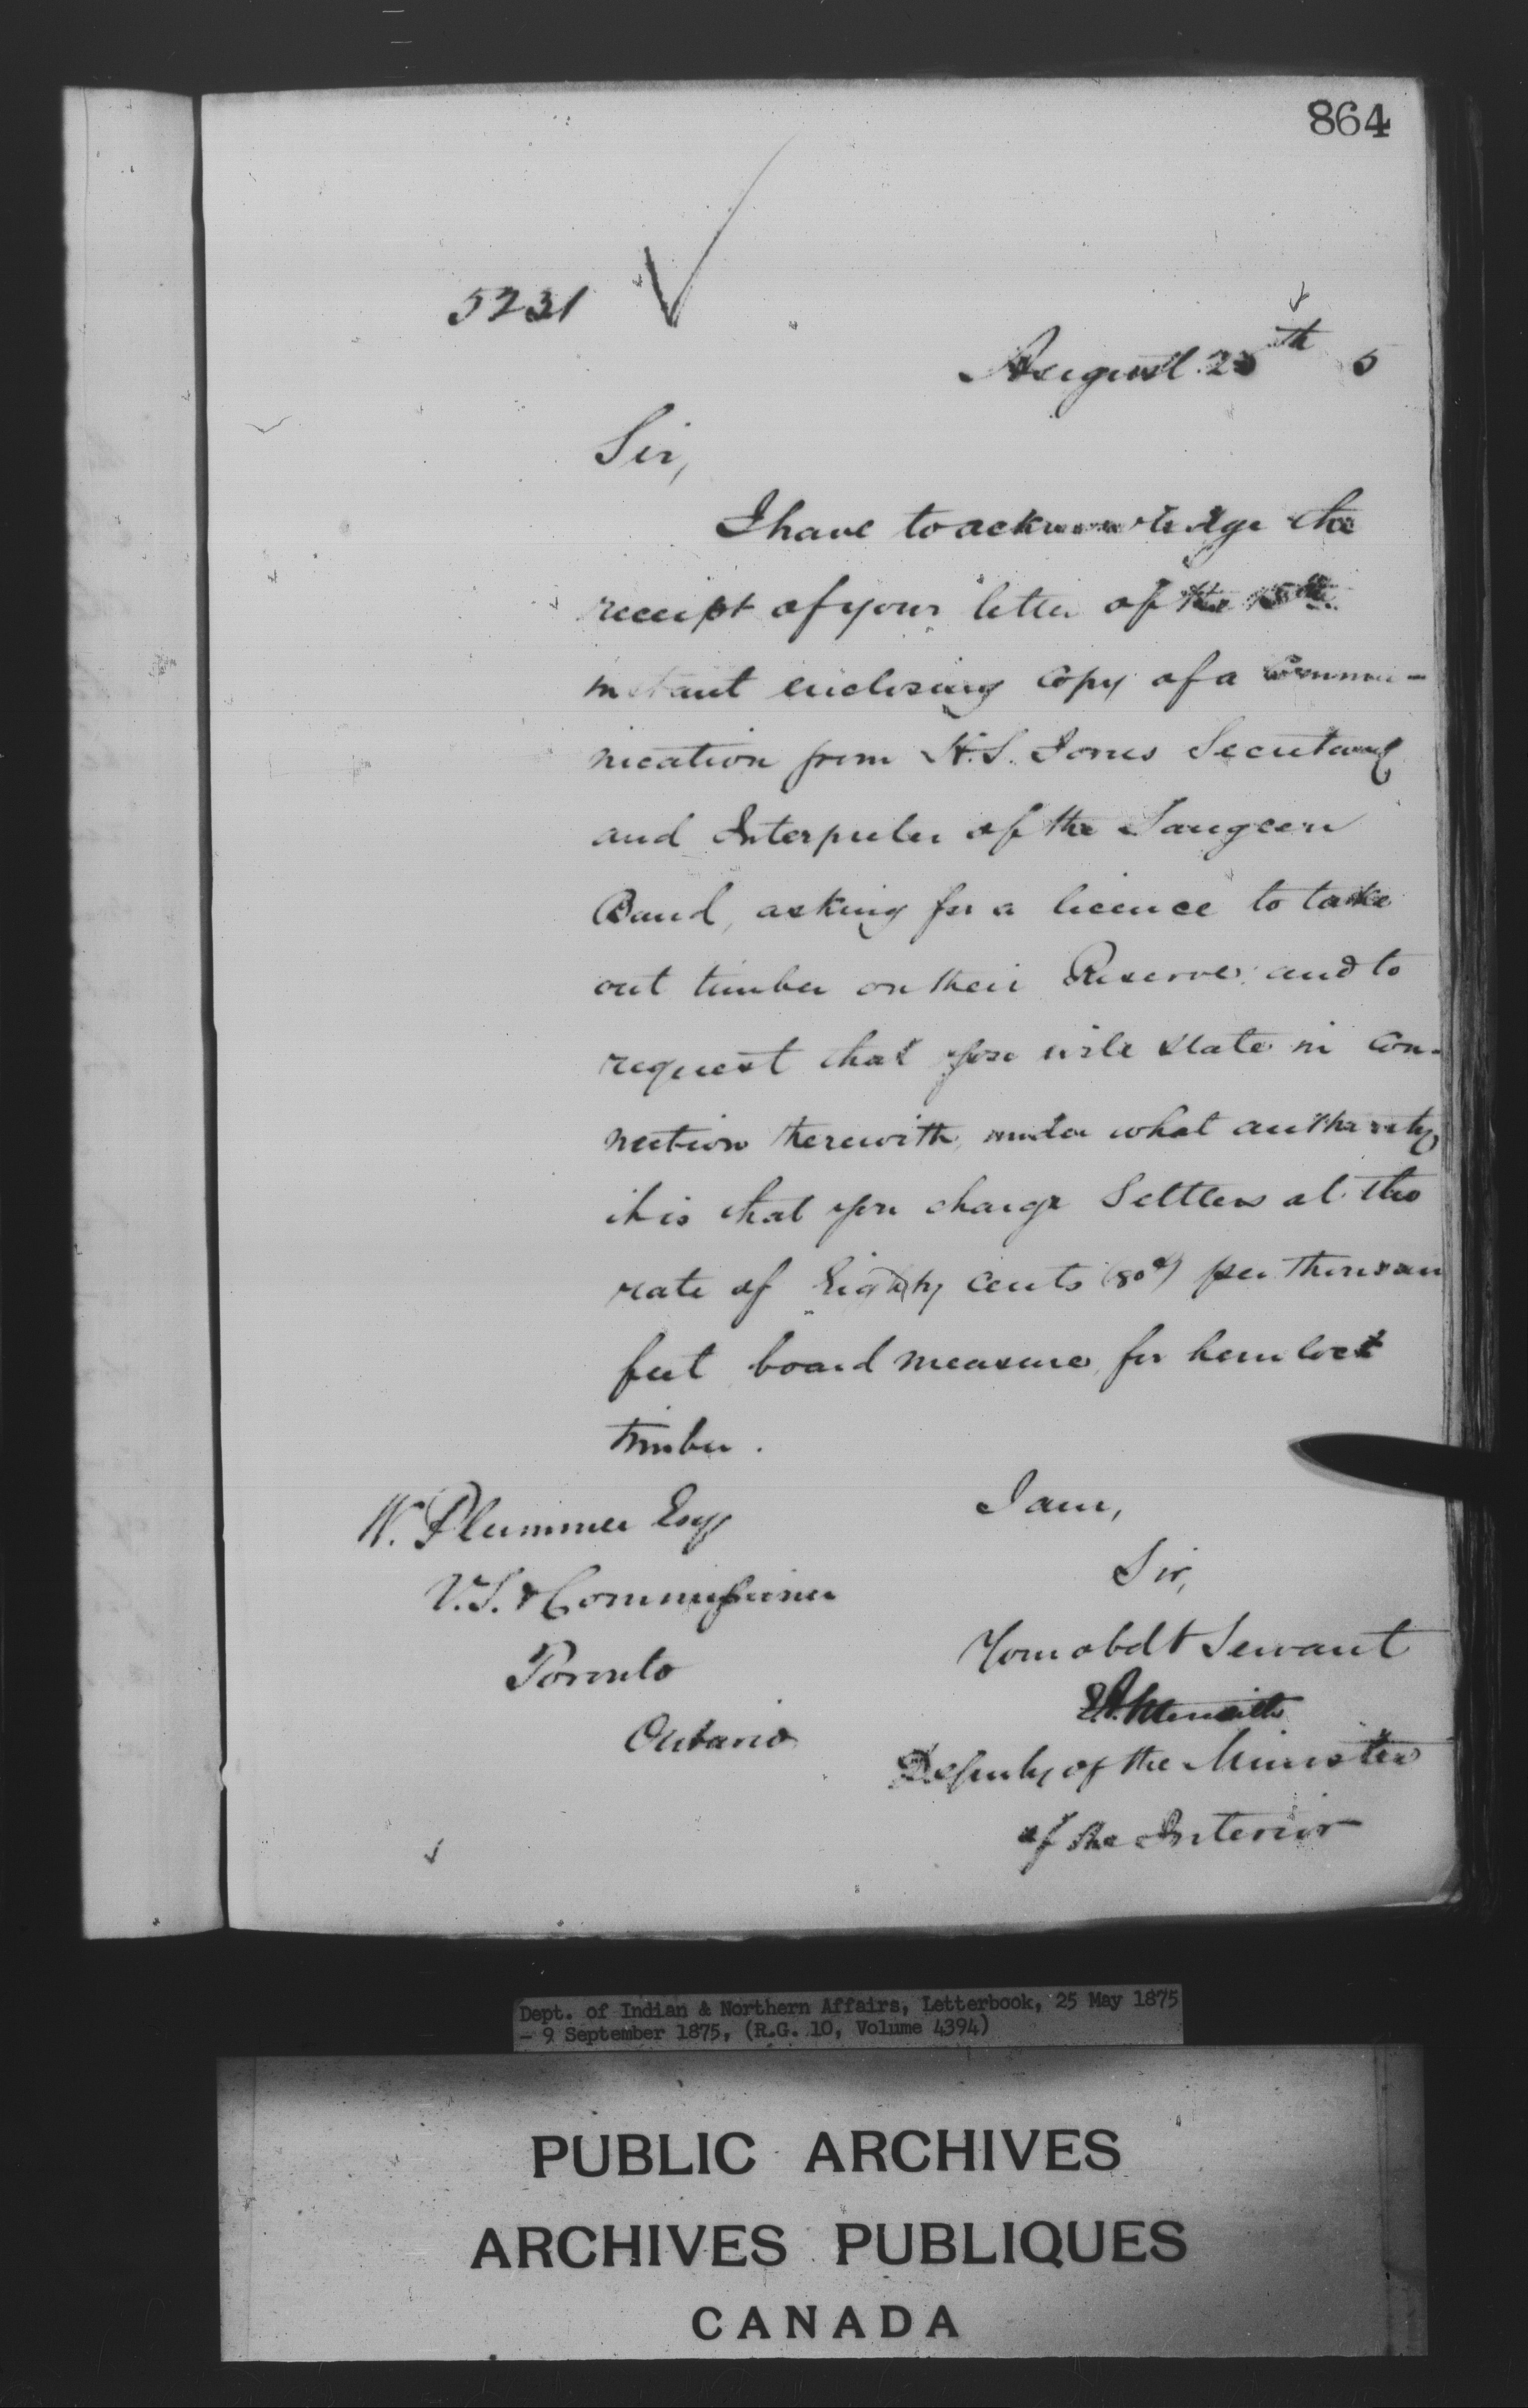 864
5231
August 25th 5
Sir,
I have to acknowledge the
receipt of your letter of the 18th
instant enclosing copy of a Commu-
nication from H.S. Jones Secretary
and Interpreter of the Saugeen
Band, asking for a licence to take
out timber on their Reserve, and to
request that you will state in con-
nection therewith, under what authority
it is that you charge Settlers at the
rate of Eighty cents (80¢) per thousan
feet board measure, for hemlock
timber.
W. Plummer Esq
V.S. & Commissioner
Toronto
Ontario
I am,
Sir,
Your obdt Servant
Deputy of the Minister
of the Interior
Dept. of Indian & Northern Affairs, Letterbook, 25 May 1875
- 9 September 1875, (R.G. 10, Volume 4394)
PUBLIC ARCHIVES
ARCHIVES PUBLIQUES
CANADA